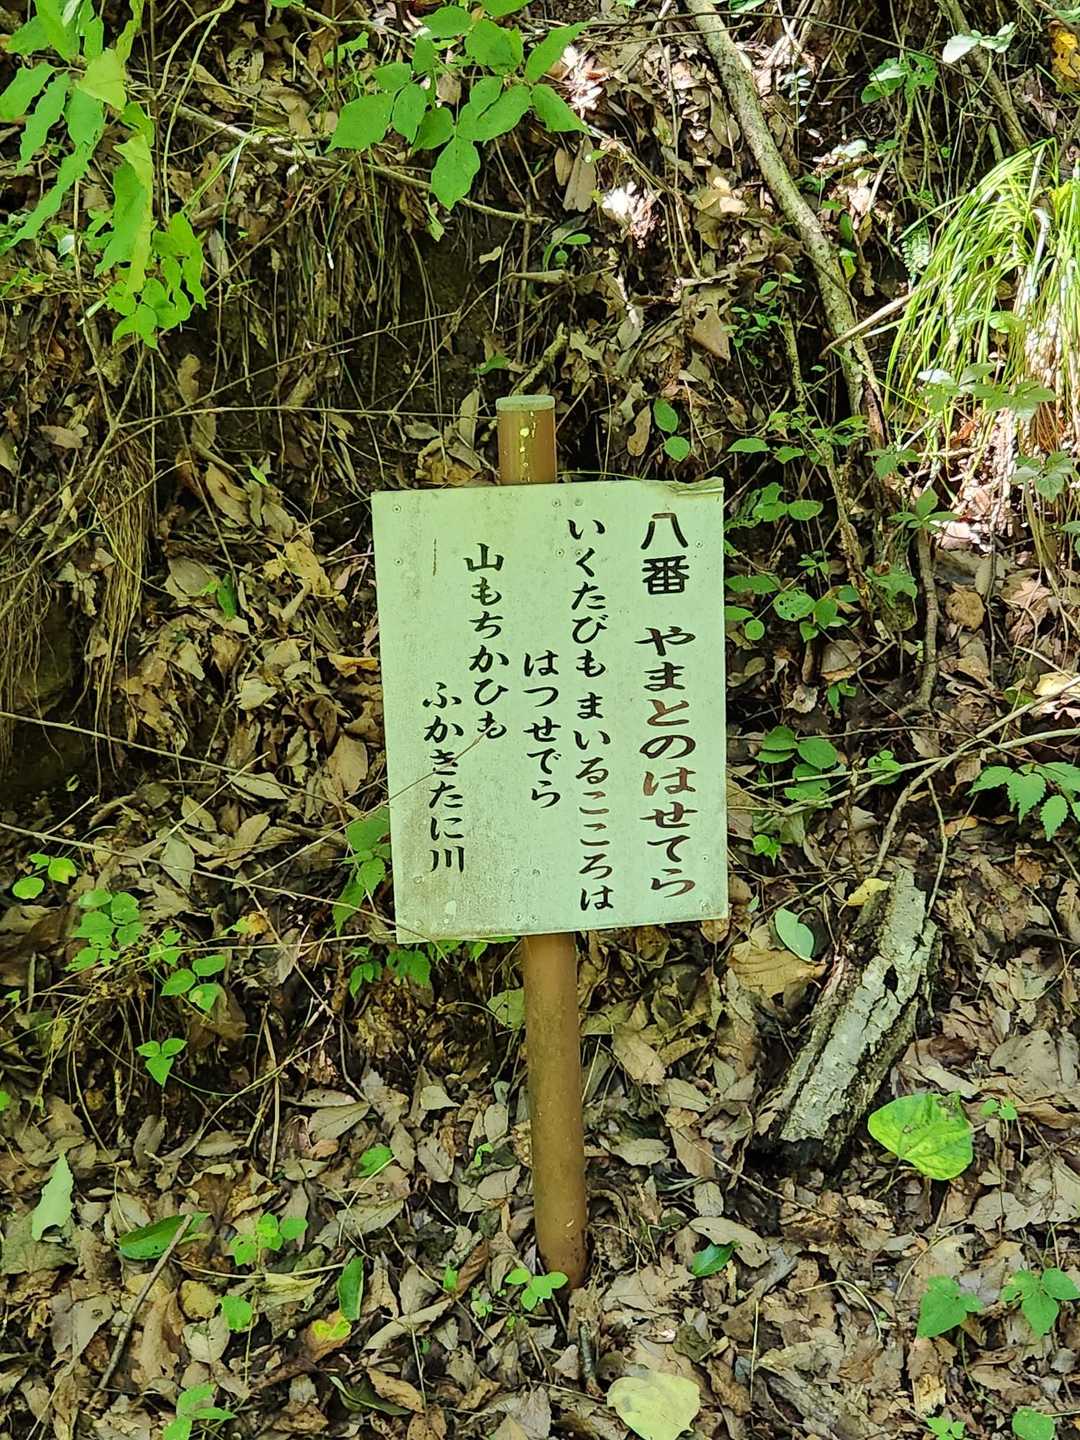 八番 やまとのはせてら
いくたびもまいるこころは
はつせでら
山もちかひも
ふかきたに川